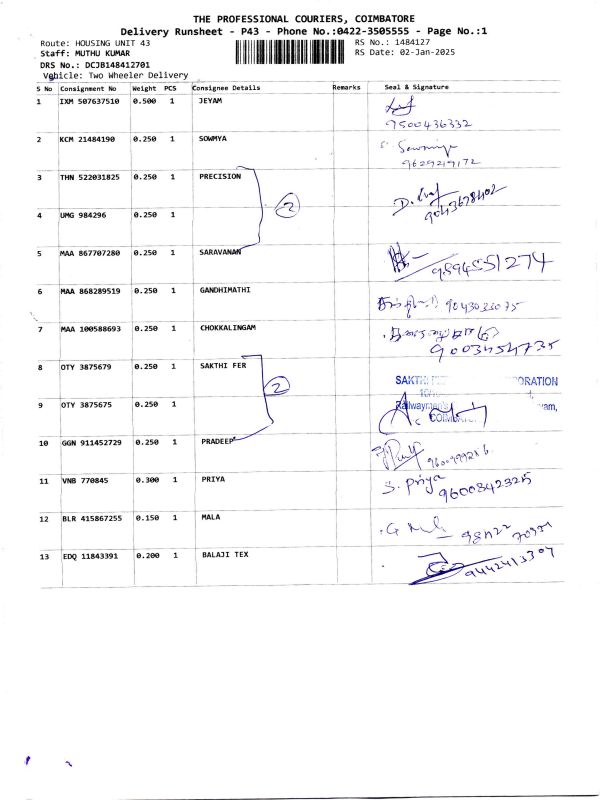 THE PROFESSIONAL COURIERS, COIMBATORE
Delivery Runsheet - P43 - Phone No.:0422-3505555 - Page No.:1
Route: HOUSING UNIT 43 RS No.: 1484127
Staff: MUTHU KUMAR RS Date: 02-Jan-2025
DRS No.: DCJB148412701
Vehicle: Two Wheeler Delivery
S No Consignment No Weight PCS Consignee Details Remarks Seal & Signature
1 IXM 507637510 0.500 1 JEYAM
9500436332
2 KCM 21484190 0.250 1 SOWMYA
S. Sowmiya
9629219172
3 THN 522031825 0.250 1 PRECISION
2
9043678402
4 UMG 984296 0.250 1
5 MAA 867707280 0.250 1 SARAVANAN
9894551274
6 MAA 868289519 0.250 1 GANDHIMATHI
9043033075
7 MAA 100588693 0.250 1 CHOKKALINGAM
9003454735
8 OTY 3875679 0.250 1 SAKTHI FER
2
SAKTHI ORPORATION
9 OTY 3875675 0.250 1
Railwaymen's
COIMBATORE
10 GGN 911452729 0.250 1 PRADEEP
11 VNB 770845 0.300 1 PRIYA
S. Priya
9600842325
12 BLR 415867255 0.150 1 MALA
13 EDQ 11843391 0.200 1 BALAJI TEX
9442413307